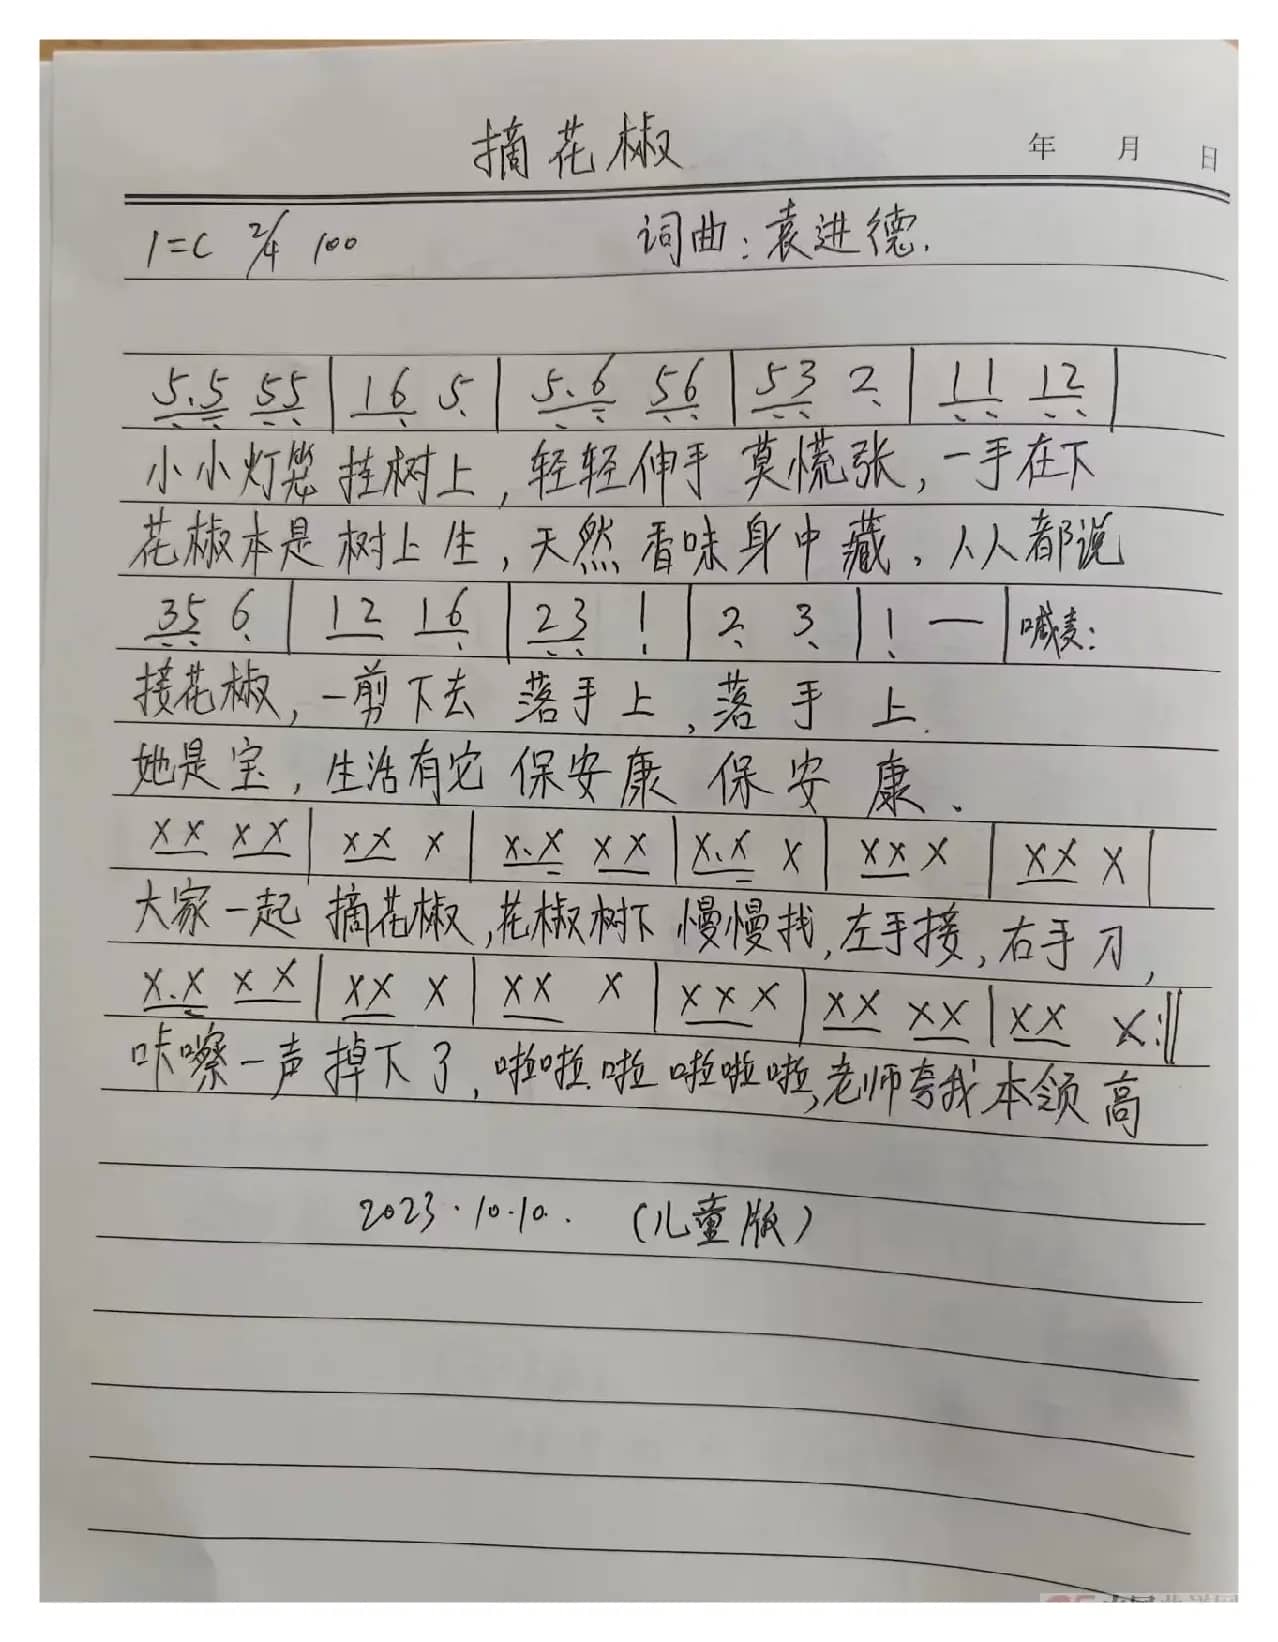 摘花椒
年 月 日
1=C 2/4 100 词曲:袁进德.
5.5 55 | 1 6 5 | 5.6 56 | 53 2 | 11 12 |
小小灯笼 挂树上,轻轻伸手 莫慌张,一手在下
花椒本是树上生,天然香味身中藏,人人都说
35 6 | 12 16 | 23 1 | 2 3 | 1 — | 喊麦:
接花椒,一剪下去 落手上,落手上.
她是宝,生活有它 保安康 保安康.
XX XX | XX X | X.X XX | X.X X | XX X | XX X |
大家一起 摘花椒,花椒树下 慢慢找,左手接,右手刀,
X.X XX | XX X | XX X | XX X | XX XX | XX X :||
咔嚓一声掉下了,啦啦啦 啦啦啦,老师夸我本领高
2023.10.10. (儿童版)